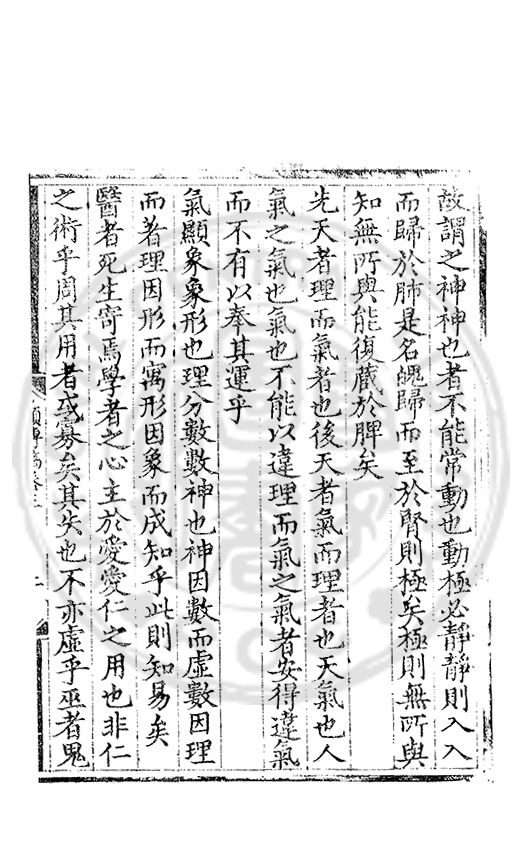 故謂之神神也者不能常動也動極必靜靜則入入
而歸於肺是名魄歸而至於腎則極矣極則無所與
知無所與能復藏於脾矣
先天者理而氣者也後天者氣而理者也天氣也人
氣之氣也氣也不能以違理而氣之氣者安得違氣
而不有以奉其運乎
氣顯象象形也理分數數神也神因數而虛數因理
而著理因形而寓形因象而成知乎此則知易矣
醫者死生寄焉學者之心主於愛愛仁之用也非仁
之術乎周其用者或寡矣其失也不亦虛乎巫者鬼